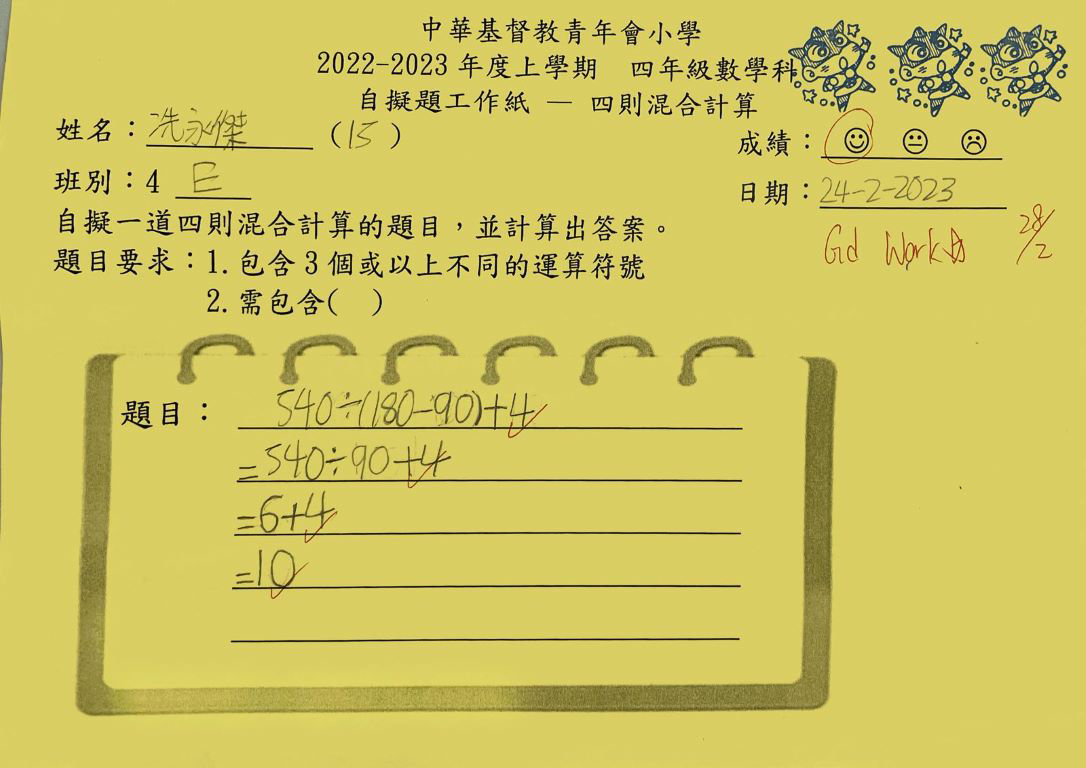 中華基督教青年會小學
2022-2023 年度上學期 四年級數學科
自擬題工作紙 — 四則混合計算
姓名：冼永傑 (15)
成績：☺ 😐 ☹
班別：4 E
日期：24-2-2023
自擬一道四則混合計算的題目，並計算出答案。
Gd Work☆ 28/2
題目要求：1. 包含 3 個或以上不同的運算符號
2. 需包含( )
題目： 540÷(180-90)+4
=540÷90+4
=6+4
=10